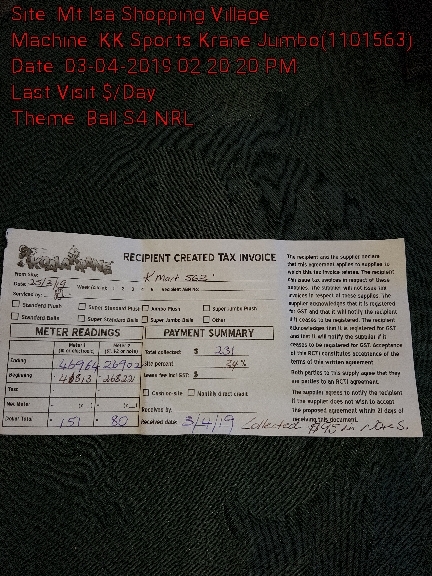 Site: Mt Isa Shopping Village
Machine: KK Sports Krane Jumbo(1101563)
Date: 03-04-2019 02:20:20 PM
Last Visit $/Day
Theme: Ball S4 NRL
RECIPIENT CREATED TAX INVOICE
K Mart 5631
Date: 25/3/19
Serviced by:
Standard Plush
Super Standard Plush
Jumbo Plush
Super Jumbo Plush
Standard Balls
Super Standard Balls
Super Jumbo Balls
Other
METER READINGS
Meter 1
Meter 2
Ending
46964
26902
Beginning
26822
Test
Net Meter
Dollar Total
151
80
PAYMENT SUMMARY
Total collected: $ 231
Site percent
34%
Lease fee incl GST: $
Cash on-site
Monthly direct credit
Received by:
Received date: 3/4/19
Collected $195 in notes.
The recipient and the supplier declare
that this agreement applies to supplies to
which this tax invoice relates. The recipient
can issue tax invoices in respect of these
supplies. The supplier will not issue tax
invoices in respect of these supplies. The
supplier acknowledges that it is registered
for GST and that it will notify the recipient
if it ceases to be registered. The recipient
acknowledges that it is registered for GST
and that it will notify the supplier if it
ceases to be registered for GST. Acceptance
of this RCTI constitutes acceptance of the
terms of this written agreement.
Both parties to this supply agree that they
are parties to an RCTI agreement.
The supplier agrees to notify the recipient
if the supplier does not wish to accept
the proposed agreement within 21 days of
receiving this document.